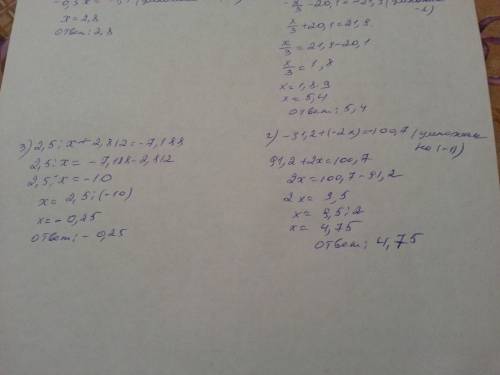 -0,5x=
x=2,8
Ответ: 2,8
-x/3-20,1=-21,9 (умножим
-1)
x/3+20,1=21,9
x/3=21,9-20,1
x/3=1,8
x=1,8·3
x=5,4
Ответ: 5,4
3) 2,5:x+2,812=-7,188
2,5:x=-7,188-2,812
2,5:x=-10
x=2,5:(-10)
x=-0,25
Ответ: -0,25
2) -91,2+(-2x)=-100,7 (умножим
на (-1))
91,2+2x=100,7
2x=100,7-91,2
2x=9,5
x=9,5:2
x=4,75
Ответ: 4,75